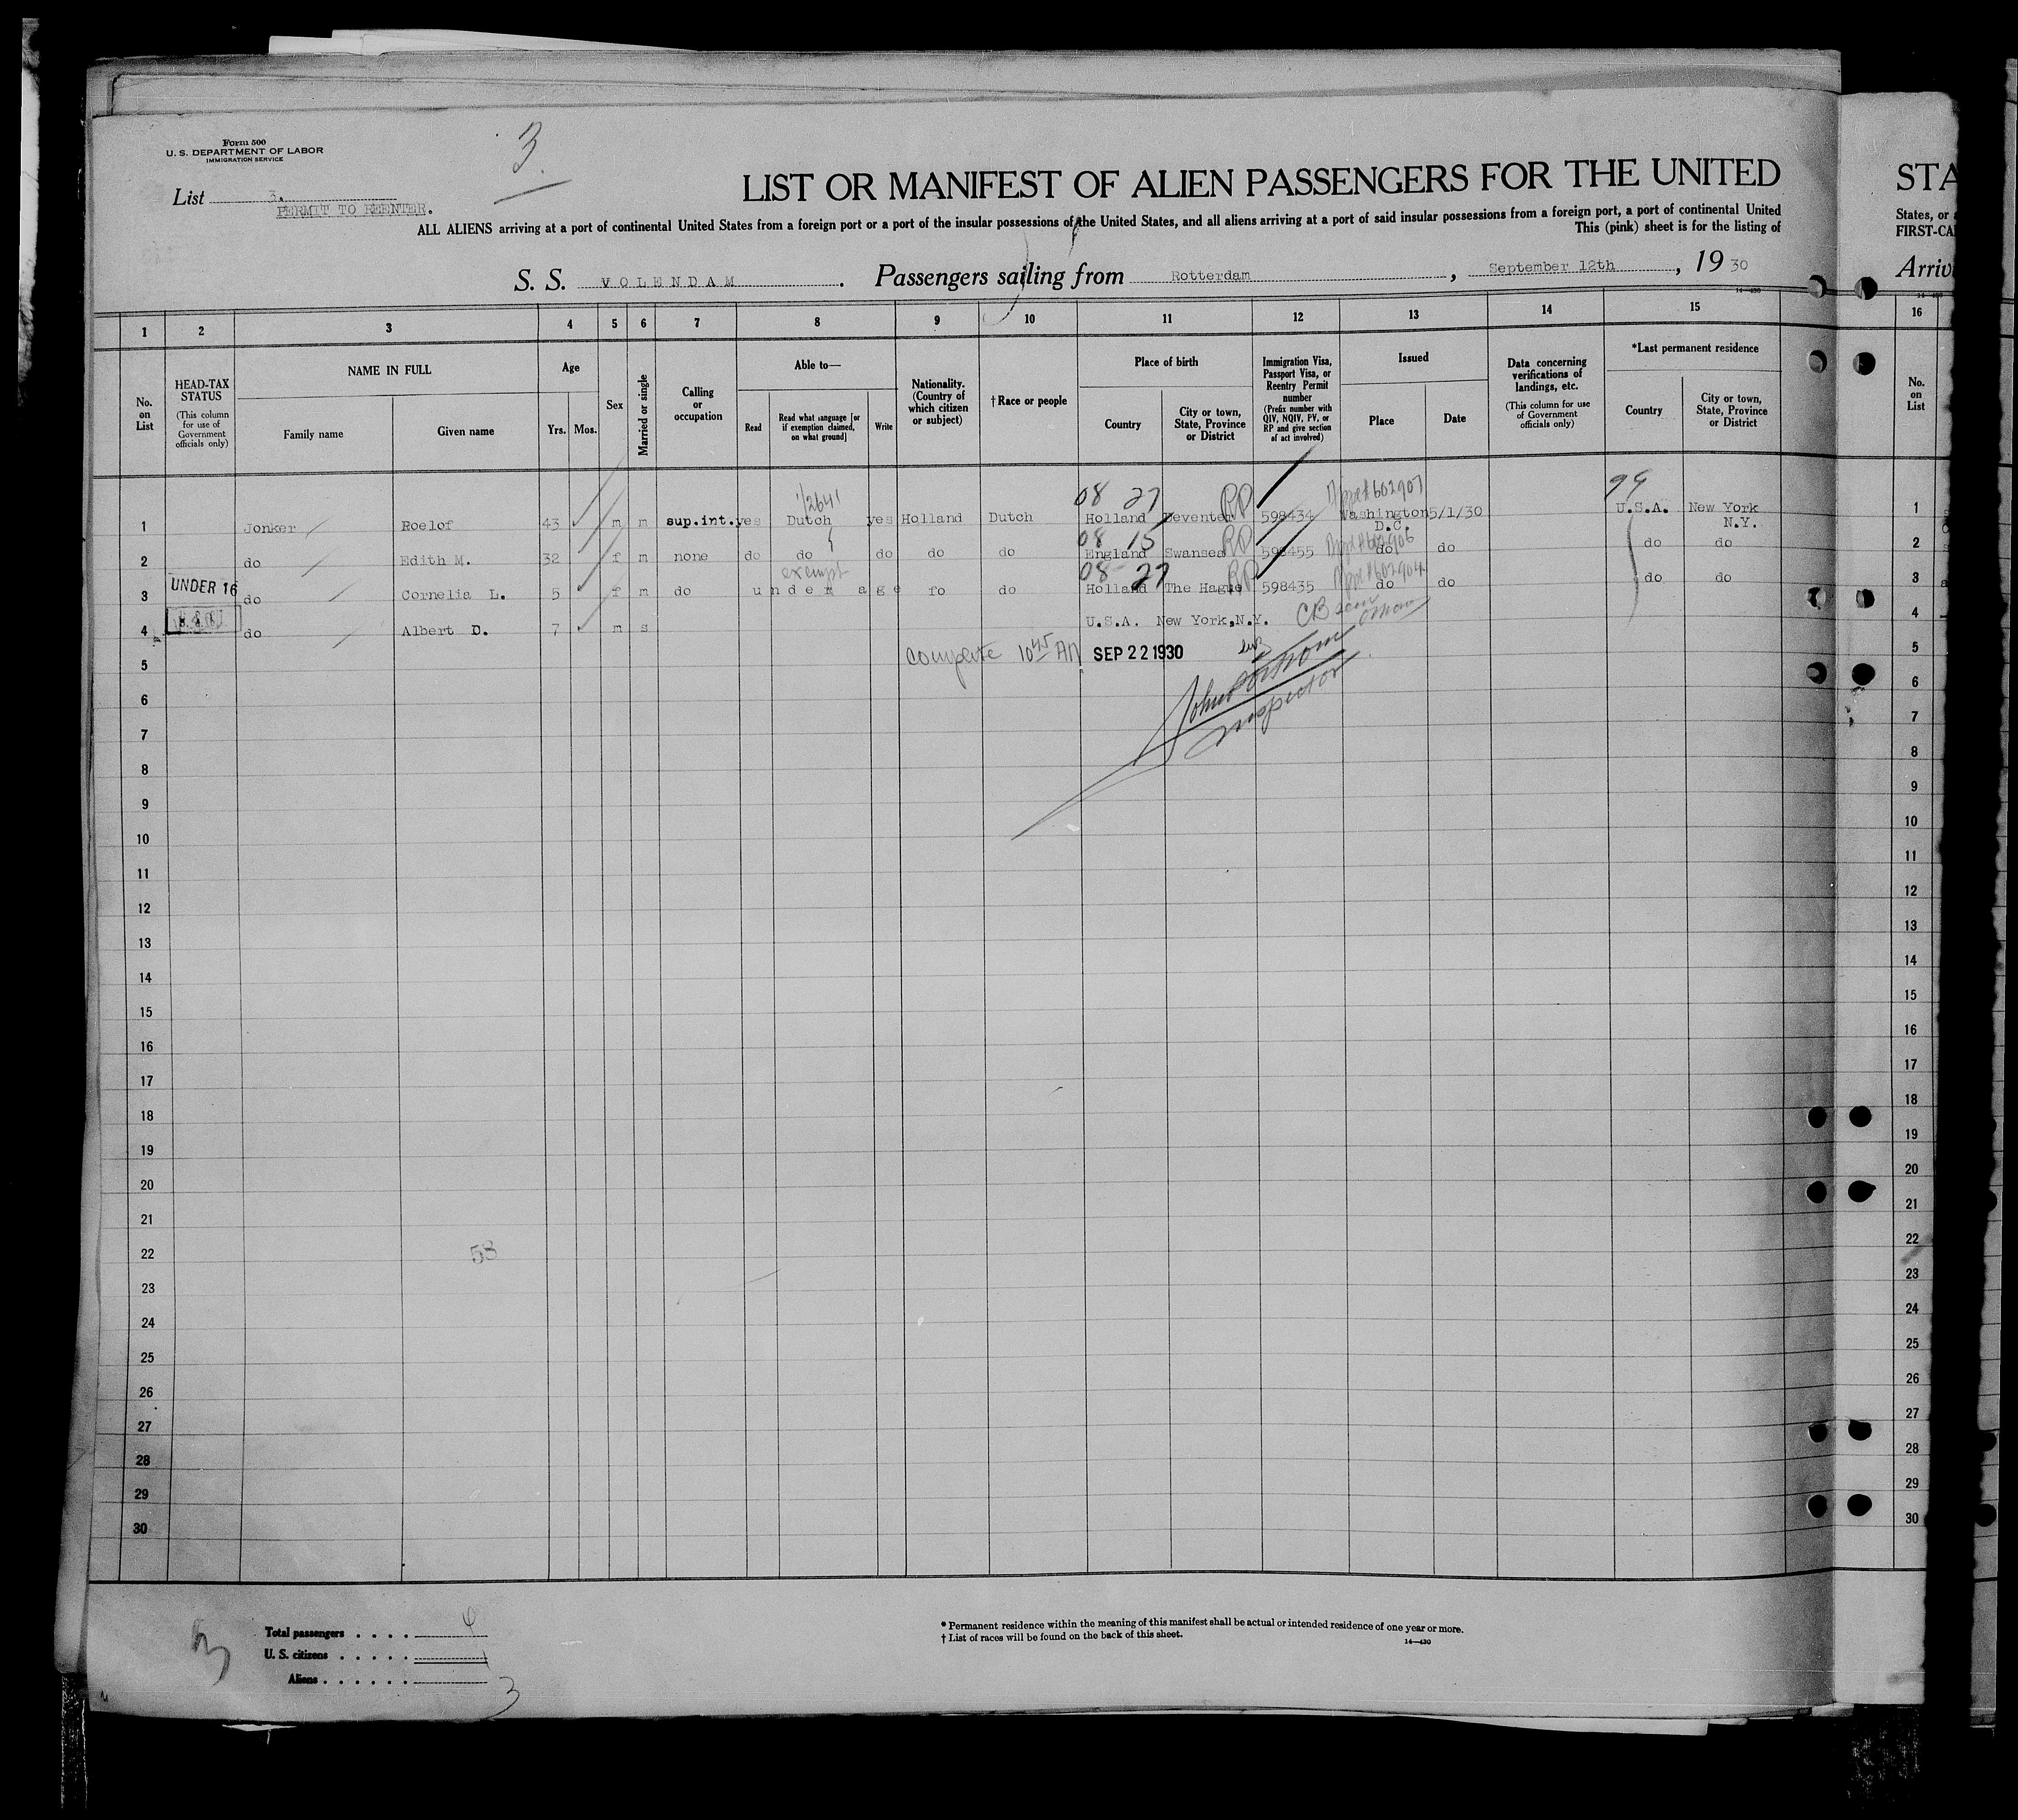 Form 500
U. S. DEPARTMENT OF LABOR
IMMIGRATION SERVICE
3.
List 3.
PERMIT TO REENTER.
LIST OR MANIFEST OF ALIEN PASSENGERS FOR THE UNITED
STA
ALL ALIENS arriving at a port of continental United States from a foreign port or a port of the insular possessions of the United States, and all aliens arriving at a port of said insular possessions from a foreign port, a port of continental United
States, or
This (pink) sheet is for the listing of
FIRST-CA
S. S. VOLENDAM. Passengers sailing from Rotterdam, September 12th, 19 30
Arriv
14—430
1 2 3 4 5 6 7 8 9 10 11 12 13 14 15 16
No. on List
HEAD-TAX STATUS
(This column for use of Government officials only)
NAME IN FULL
Family name
Given name
Age
Yrs. Mos.
Sex
Married or single
Calling or occupation
Able to—
Read
Read what language [or if exemption claimed, on what ground]
Write
Nationality. (Country of which citizen or subject)
† Race or people
Place of birth
Country
City or town, State, Province or District
Immigration Visa, Passport Visa, or Reentry Permit number
(Prefix number with QIV, NQIV, PV, or RP and give section of act involved)
Issued
Place
Date
Data concerning verifications of landings, etc.
(This column for use of Government officials only)
*Last permanent residence
Country
City or town, State, Province or District
No. on List
08 27 RP 602907 99
1 Jonker Roelof 43 m m sup.int. yes Dutch yes Holland Dutch Holland Deventer 598434 Washington D.C. 5/1/30 U.S.A. New York N.Y. 1
08 15 RP 602906
2 do Edith M. 32 f m none do do do do do England Swansea 598455 do do do do 2
exempt 08 27 RP 602904
UNDER 16
3 do Cornelia L. 5 f m do under age fo do Holland The Hague 598435 do do do do 3
4 do Albert D. 7 m s U.S.A. New York,N.Y. CB seen 4
5 complete 10 45 AM SEP 22 1930 5
6 6
Inspector
7 7
8 8
9 9
10 10
11 11
12 12
13 13
14 14
15 15
16 16
17 17
18 18
19 19
20 20
21 21
22 58 22
23 23
24 24
25 25
26 26
27 27
28 28
29 29
30 30
Total passengers . . . . 4
U. S. citizens . . . . . 1
Aliens . . . . . . 3
* Permanent residence within the meaning of this manifest shall be actual or intended residence of one year or more.
† List of races will be found on the back of this sheet.
14—430